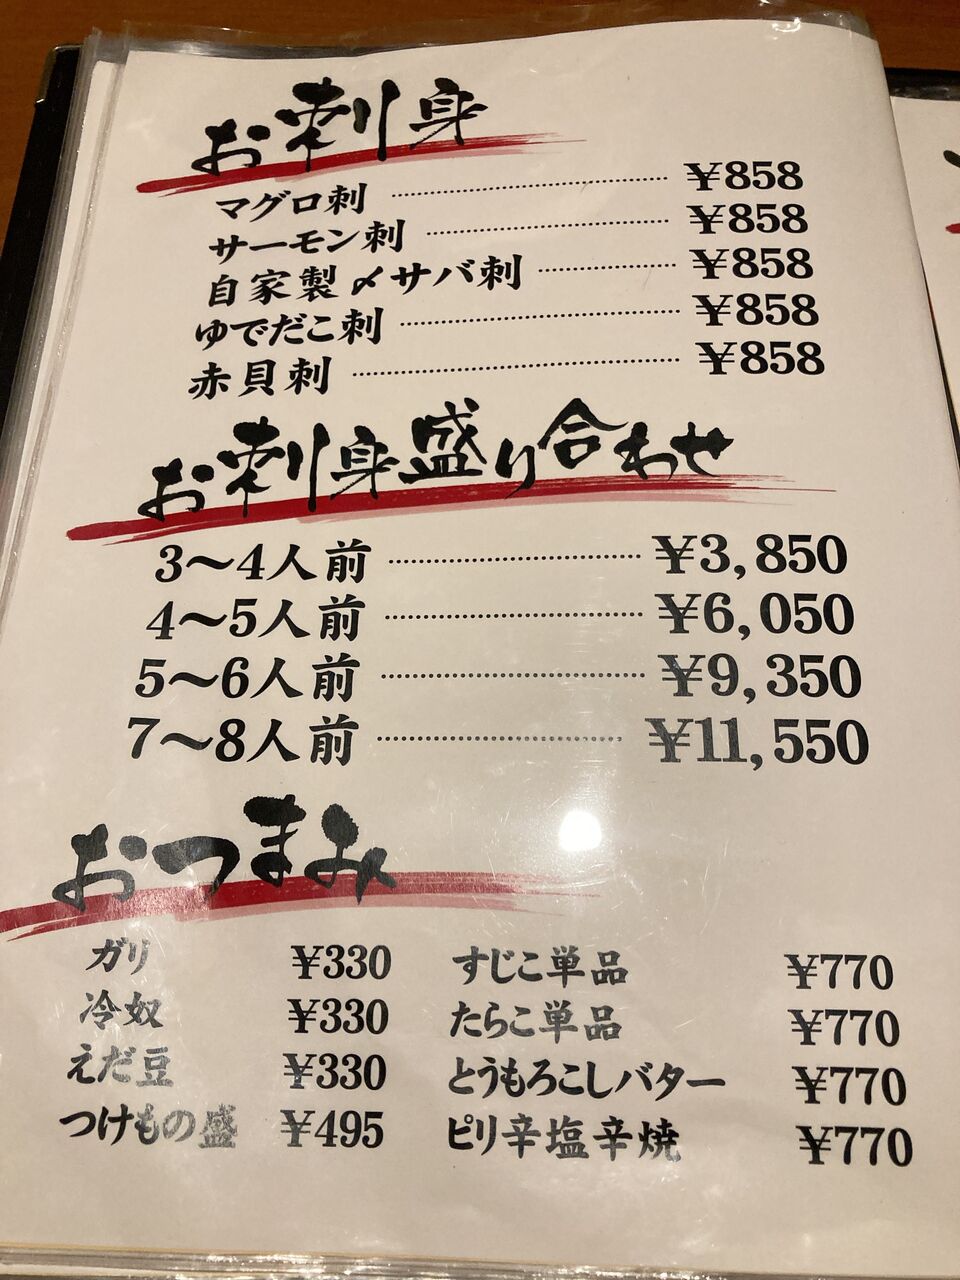 お刺身
マグロ刺 ¥858
サーモン刺 ¥858
自家製〆サバ刺 ¥858
ゆでだこ刺 ¥858
赤貝刺 ¥858
お刺身盛り合わせ
3〜4人前 ¥3,850
4〜5人前 ¥6,050
5〜6人前 ¥9,350
7〜8人前 ¥11,550
おつまみ
ガリ ¥330
冷奴 ¥330
えだ豆 ¥330
つけもの盛 ¥495
すじこ単品 ¥770
たらこ単品 ¥770
とうもろこしバター ¥770
ピリ辛塩辛焼 ¥770